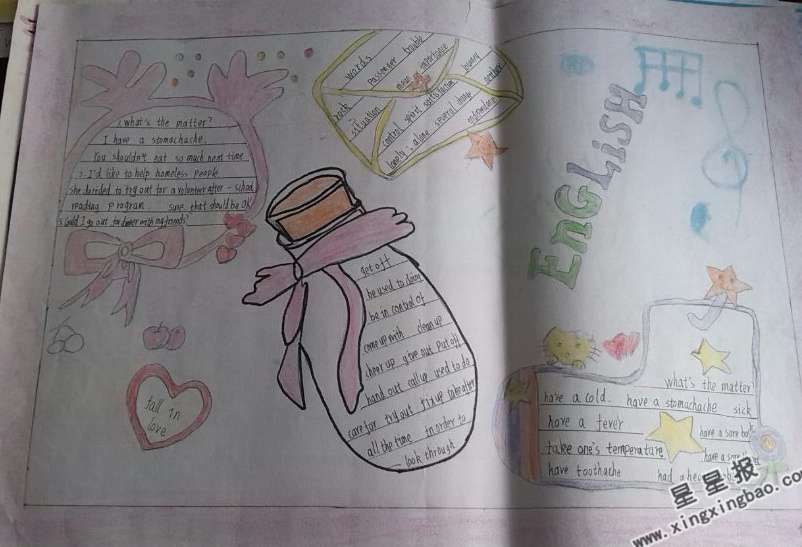 1. what's the matter?
I have a stomachache.
You shouldn't eat so much next time.
2. I'd like to help homeless people
she decided to try out for a volunteer after-school
reading program. sure, that should be OK
3. Could I go out for dinner with my friends?
words
passenger trouble
rock more importance
situation binary
control spirit satisfaction
lonely, alone several image
ENGLisH
get off
be used to doing
be in control of
come up with clean up
cheer up give out put off
hand out call up used to do
care for try out fix up take after
all the time in order to
look through
fall in
love
what's the matter
have a cold. have a stomachache sick
have a fever have a sore
take one's temperature have a sore
have toothache had a
星星报
www.xingxingbao.com